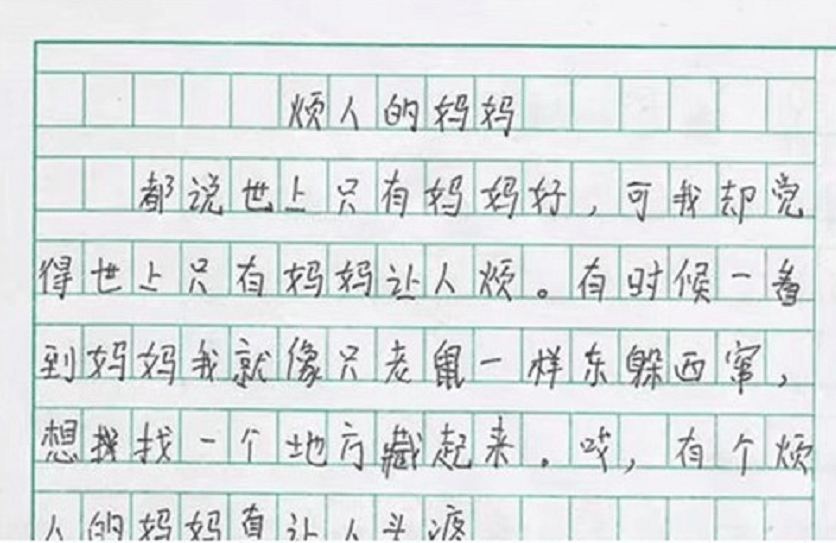 烦人的妈妈
都说世上只有妈妈好，可我却觉
得世上只有妈妈让人烦。有时候一看
到妈妈我就像只老鼠一样东躲西窜，
想找一个地方藏起来。哎，有个烦
人的妈妈真让人头疼